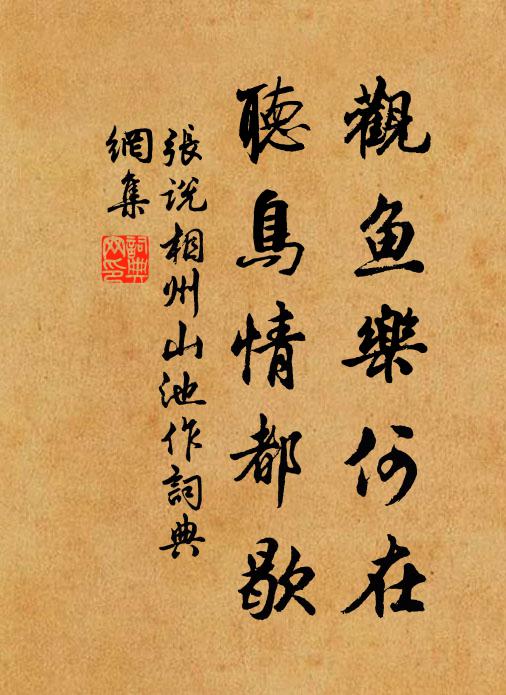 觀魚樂何在
聽鳥情都歇
張說相州山池作詞典
網集
詞典
网印